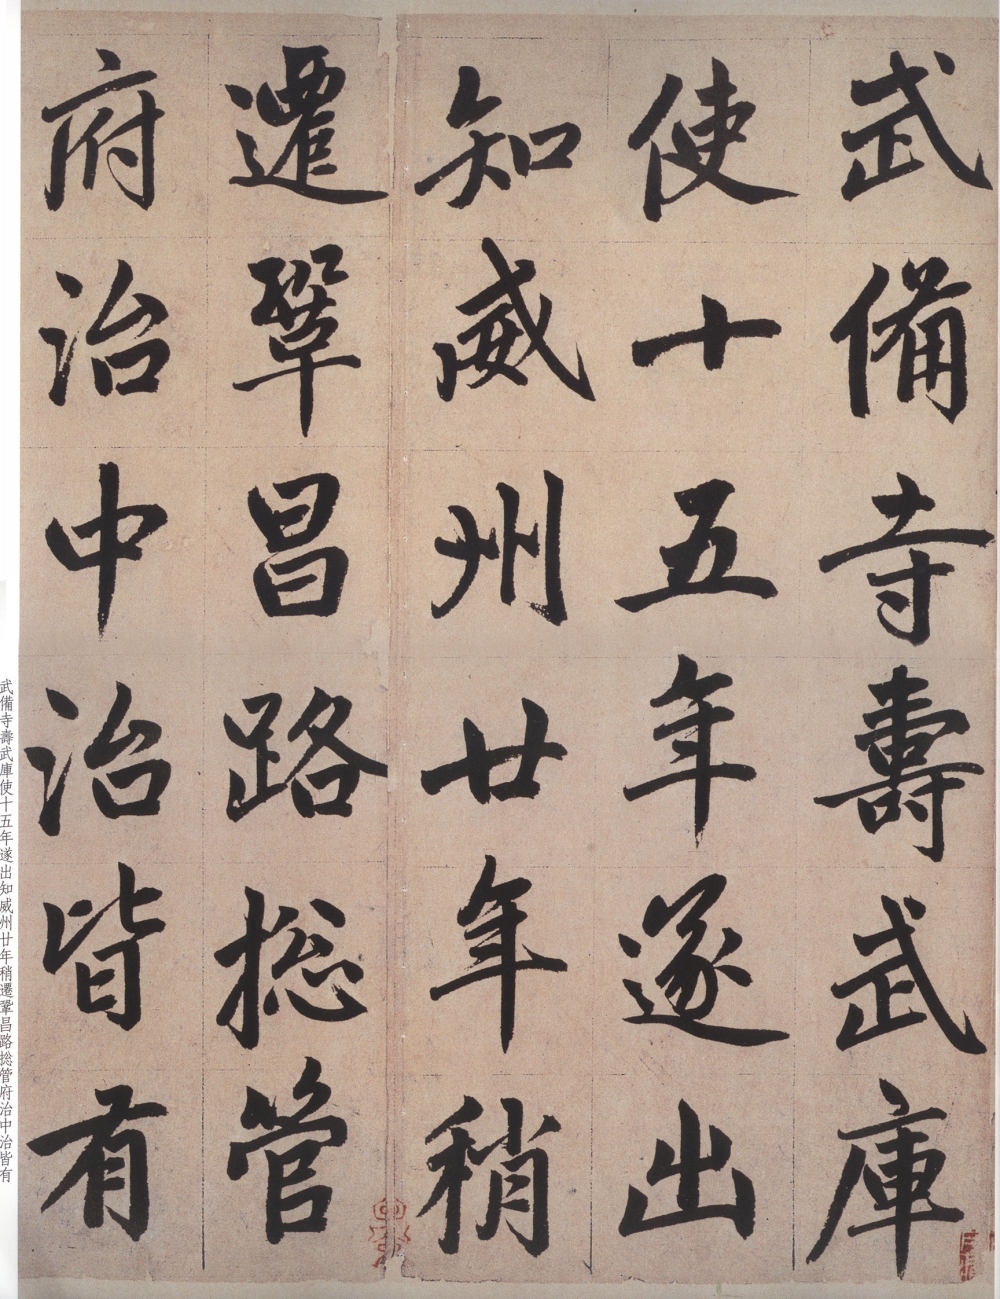 武備寺壽武庫
使十五年遂出
知威州廿年稍
遷鞏昌路捴管
府治中治皆有
武備寺壽武庫使十五年遂出知威州廿年稍遷鞏昌路捴管府治中治皆有